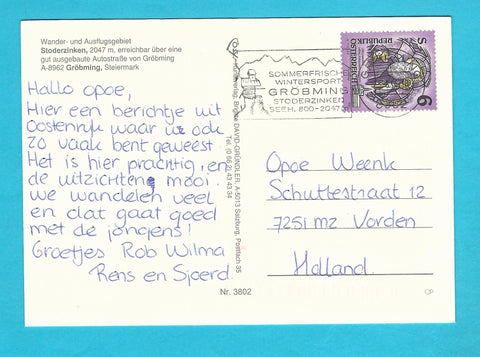 Wander- und Ausflugsgebiet
Stoderzinken, 2047 m, erreichbar über eine
gut ausgebaute Autostraße von Gröbming
A-8962 Gröbming, Steiermark
Hallo opoe,
Hier een berichtje uit
Oostenrijk waar u ook
zo vaak bent geweest.
Het is hier prachtig en
de uitzichten mooi.
we wandelen veel
en dat gaat goed
met de jongens!
Groetjes Rob Wilma
Rens en Sjoerd
DAVID-GRÜNDLER, A-5013 Salzburg, Postfach 35
SOMMERFRISCHE
WINTERSPORT
GRÖBMING
STODERZINKEN
SEEH. 800-2047
REPUBLIK
ÖSTERREICH
S
6
Opoe Weenk
Schuttestraat 12
7251 MZ Vorden
Holland
Nr. 3802
CP